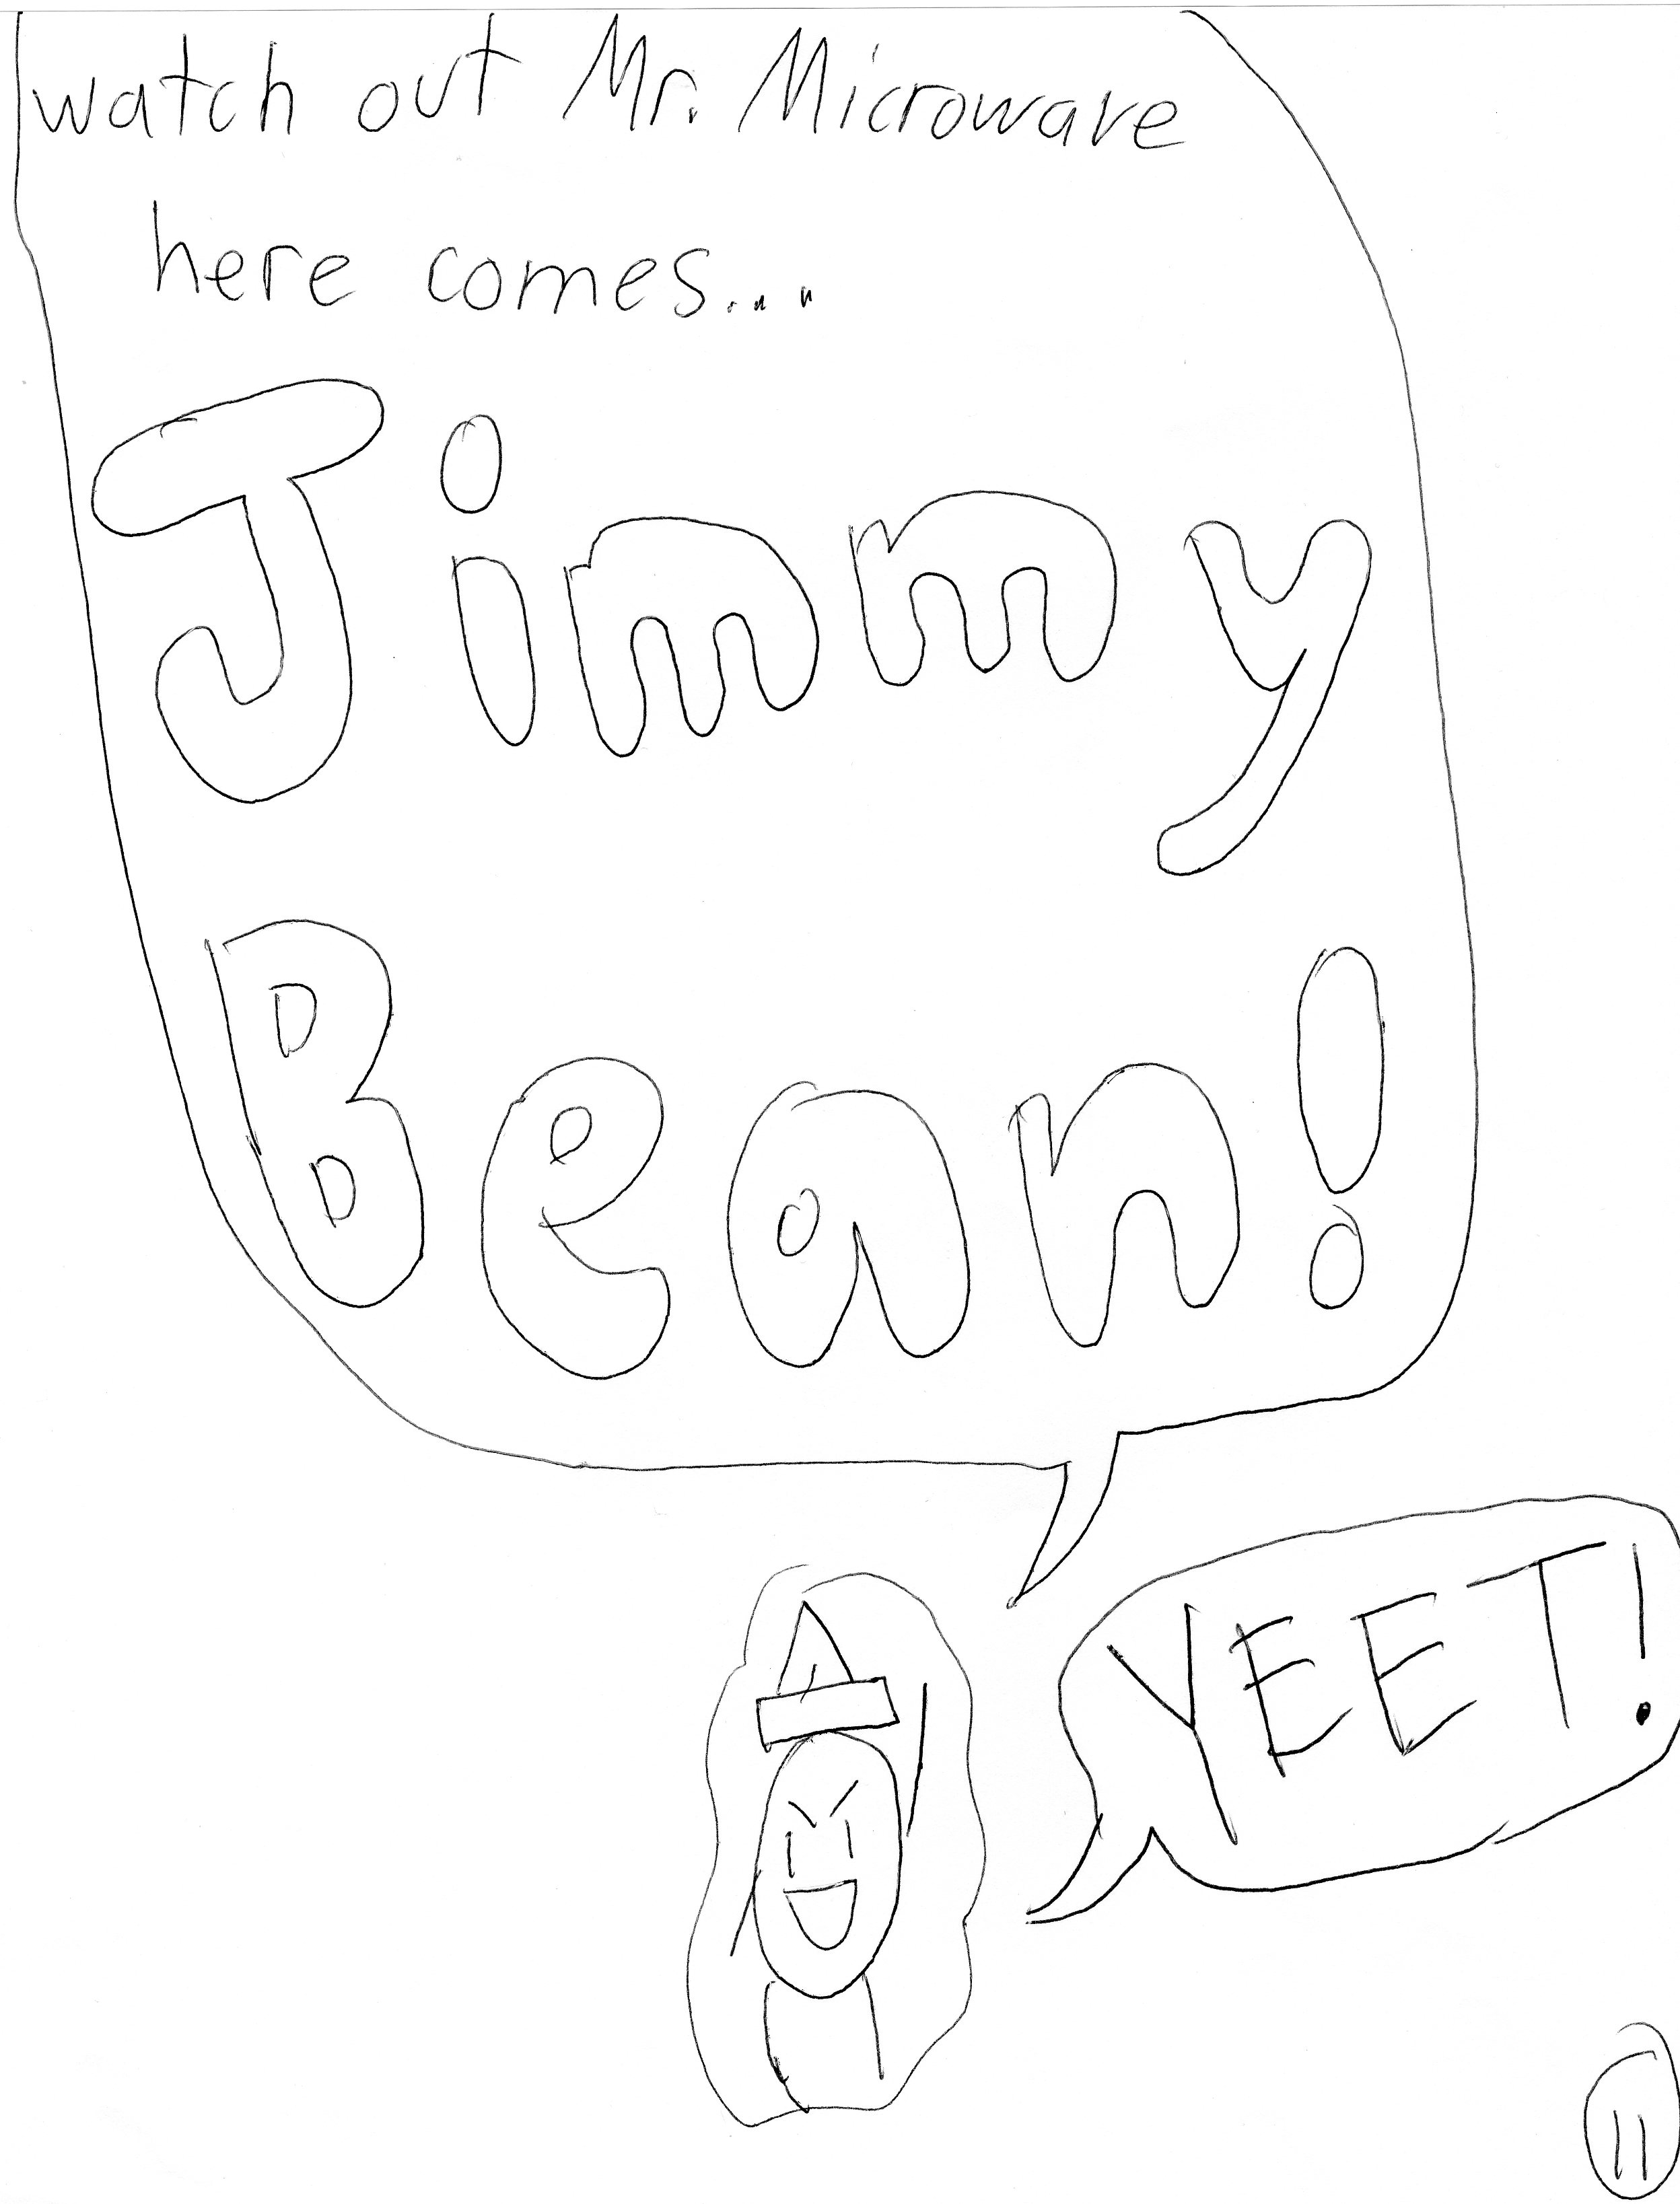 watch out Mr. Microwave
here comes...
Jimmy
Bean!
YEET!
11